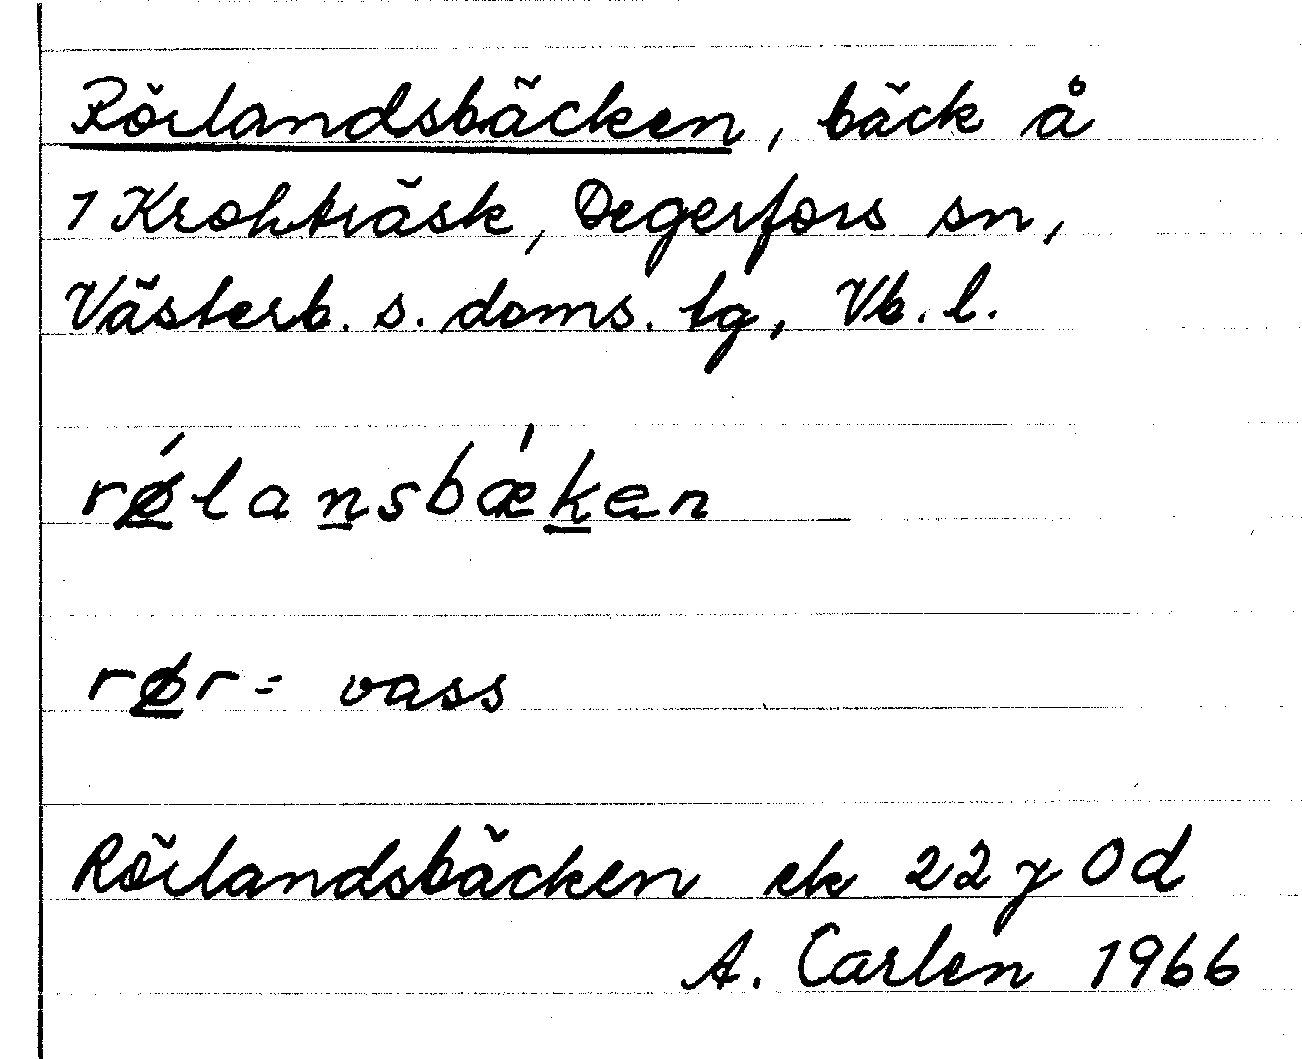 Rörlandsbäcken, bäck å
1 Krokträsk, Degerfors sn,
Västerb. s. doms. tg, Vb. l.
rǿlansbǽken
rør = vass
Rörlandsbäcken ek 22 j 0 d
A. Carlen 1966